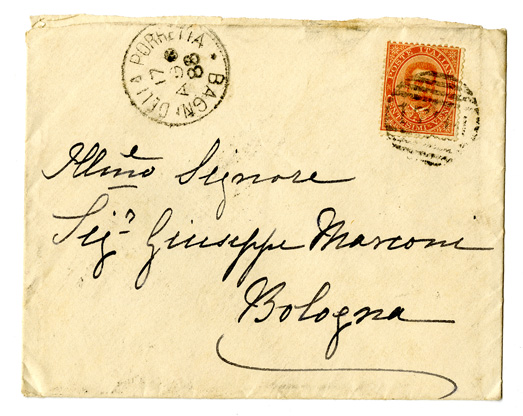 BAGNI DELLA PORRETTA
17
AGO
88
POSTE ITALIANE
Illmo Signore
Sigr Giuseppe Marconi
Bologna